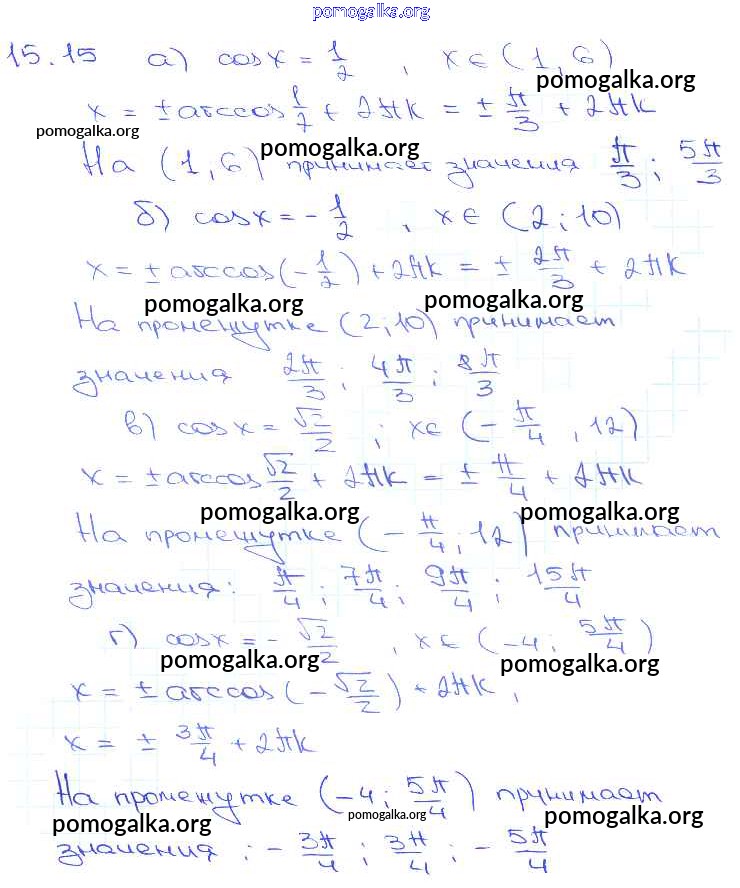 pomogalka.org
15.15 а) cos x = 1/2 , x ∈ (1,6)
pomogalka.org
x = ± arccos 1/2 + 2πk = ± π/3 + 2πk
pomogalka.org pomogalka.org
На (1,6) принимает значения π/3 ; 5π/3
б) cos x = - 1/2 , x ∈ (2;10)
x = ± arccos(-1/2) + 2πk = ± 2π/3 + 2πk
pomogalka.org pomogalka.org
На промежутке (2;10) принимает
значения 2π/3 ; 4π/3 ; 8π/3
в) cos x = √2/2 ; x ∈ (- π/4 , 12)
x = ± arccos √2/2 + 2πk = ± π/4 + 2πk
pomogalka.org pomogalka.org
На промежутке (- π/4 ; 12) принимает
значения: π/4 ; 7π/4 ; 9π/4 ; 15π/4
г) cos x = - √2/2 , x ∈ (-4 ; 5π/4)
pomogalka.org pomogalka.org
x = ± arccos(- √2/2) + 2πk ,
x = ± 3π/4 + 2πk
На промежутке (-4 ; 5π/4) принимает
pomogalka.org pomogalka.org pomogalka.org
значения ; - 3π/4 ; 3π/4 ; - 5π/4